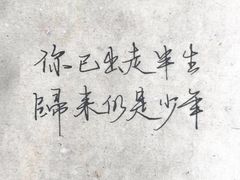 你已出走半生
歸来仍是少年